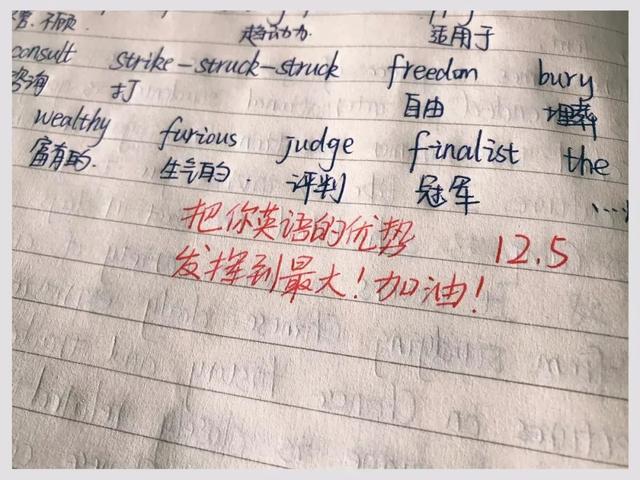 不顾.
趋动力 适用于
consult strike-struck-struck freedom bury
咨询 打 自由 埋葬
wealthy furious judge finalist the
富有的. 生气的. 评判 冠军
把你英语的优势 12.5
发挥到最大!加油!